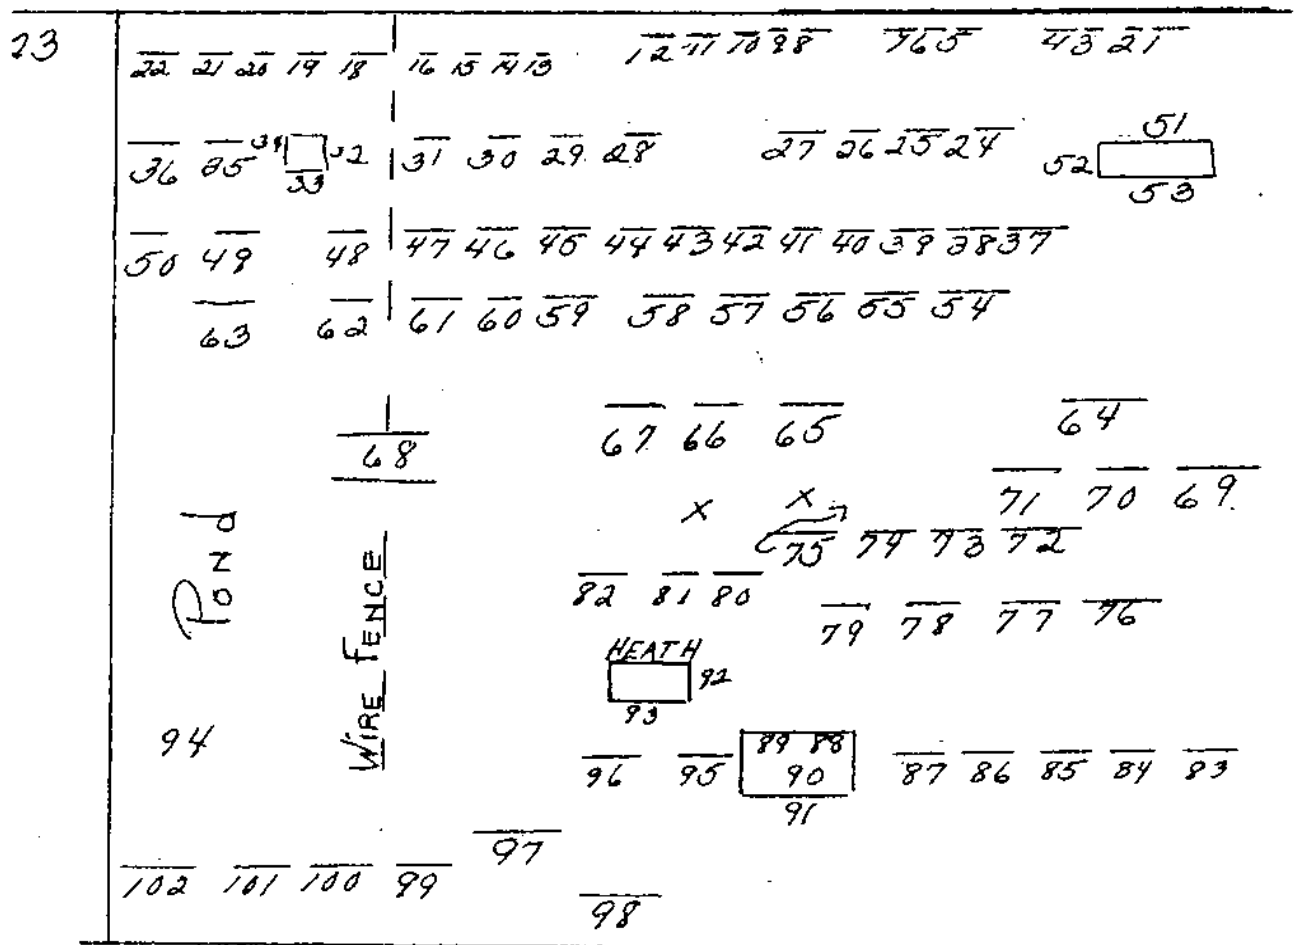 23
22 21 20 19 18 16 15 14 13 12 11 10 9 8 7 6 5 4 3 2 1
36 35 34 32 31 30 29 28 27 26 25 24 51
33 52 53
50 49 48 47 46 45 44 43 42 41 40 39 38 37
63 62 61 60 59 58 57 56 55 54
68 67 66 65 64
71 70 69
X X
75 74 73 72
82 81 80
79 78 77 76
Pond
WIRE FENCE
HEATH
92
93
94
89 88
96 95 90 87 86 85 84 83
91
97
102 101 100 99
98